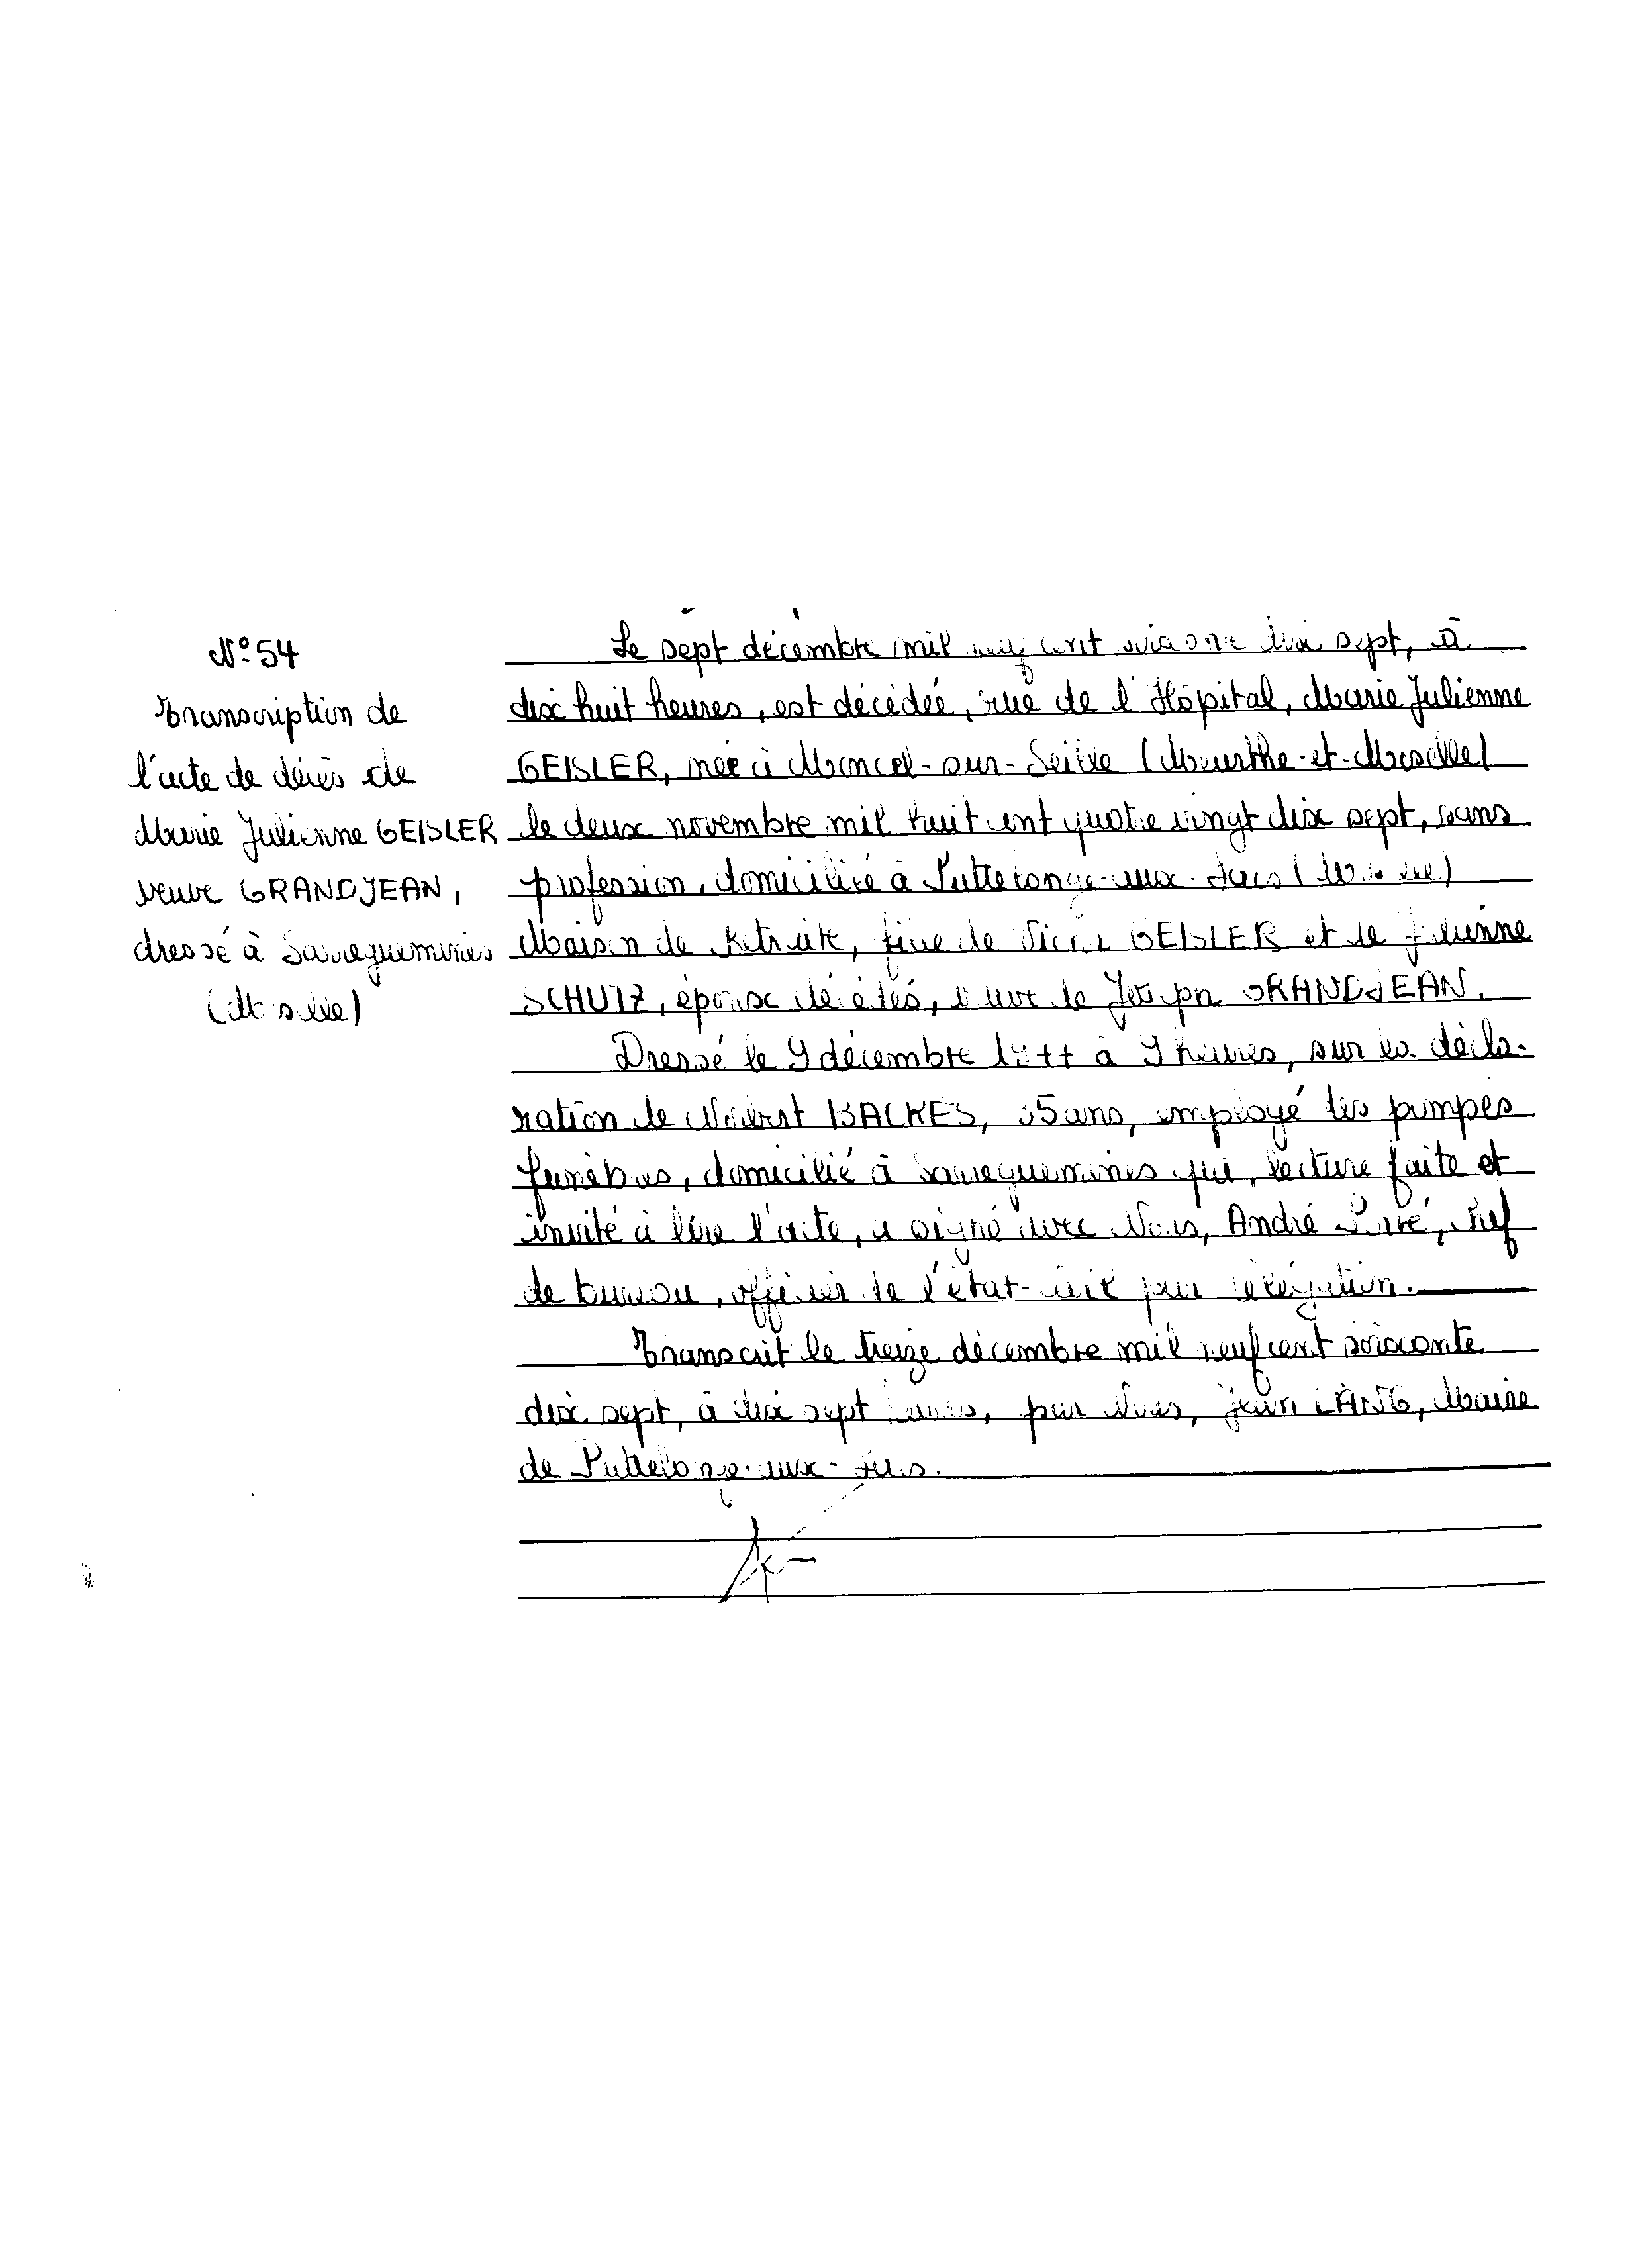 N° 54
Transcription de
l'acte de décès de
Marie Julienne GEISLER
veuve GRANDJEAN,
dressé à Sarreguemines
(Moselle)
Le sept décembre mil neuf cent soixante dix sept, à
dix huit heures, est décédée, rue de l'Hôpital, Marie Julienne
GEISLER, née à Moncel-sur-Seille (Meurthe-et-Moselle)
le deux novembre mil huit cent quatre vingt dix sept, sans
profession, domiciliée à Puttelange-aux-Lacs (Moselle)
Maison de Retraite, fille de GEISLER et de Julienne
SCHUTZ, époux décédés, veuve de Joseph GRANDJEAN.
Dressé le 9 décembre 1977 à 9 heures, sur la décla-
ration de Norbert BACKES, ans, employé des pompes
funèbres, domicilié à Sarreguemines qui, lecture faite et
invité à lire l'acte, a signé avec Nous, André chef
de bureau, officier de l'état-civil par délégation.
Transcrit le treize décembre mil neuf cent soixante
dix sept, à dix sept heures, par Nous, Jean LANG, Maire
de Puttelange-aux-Lacs.